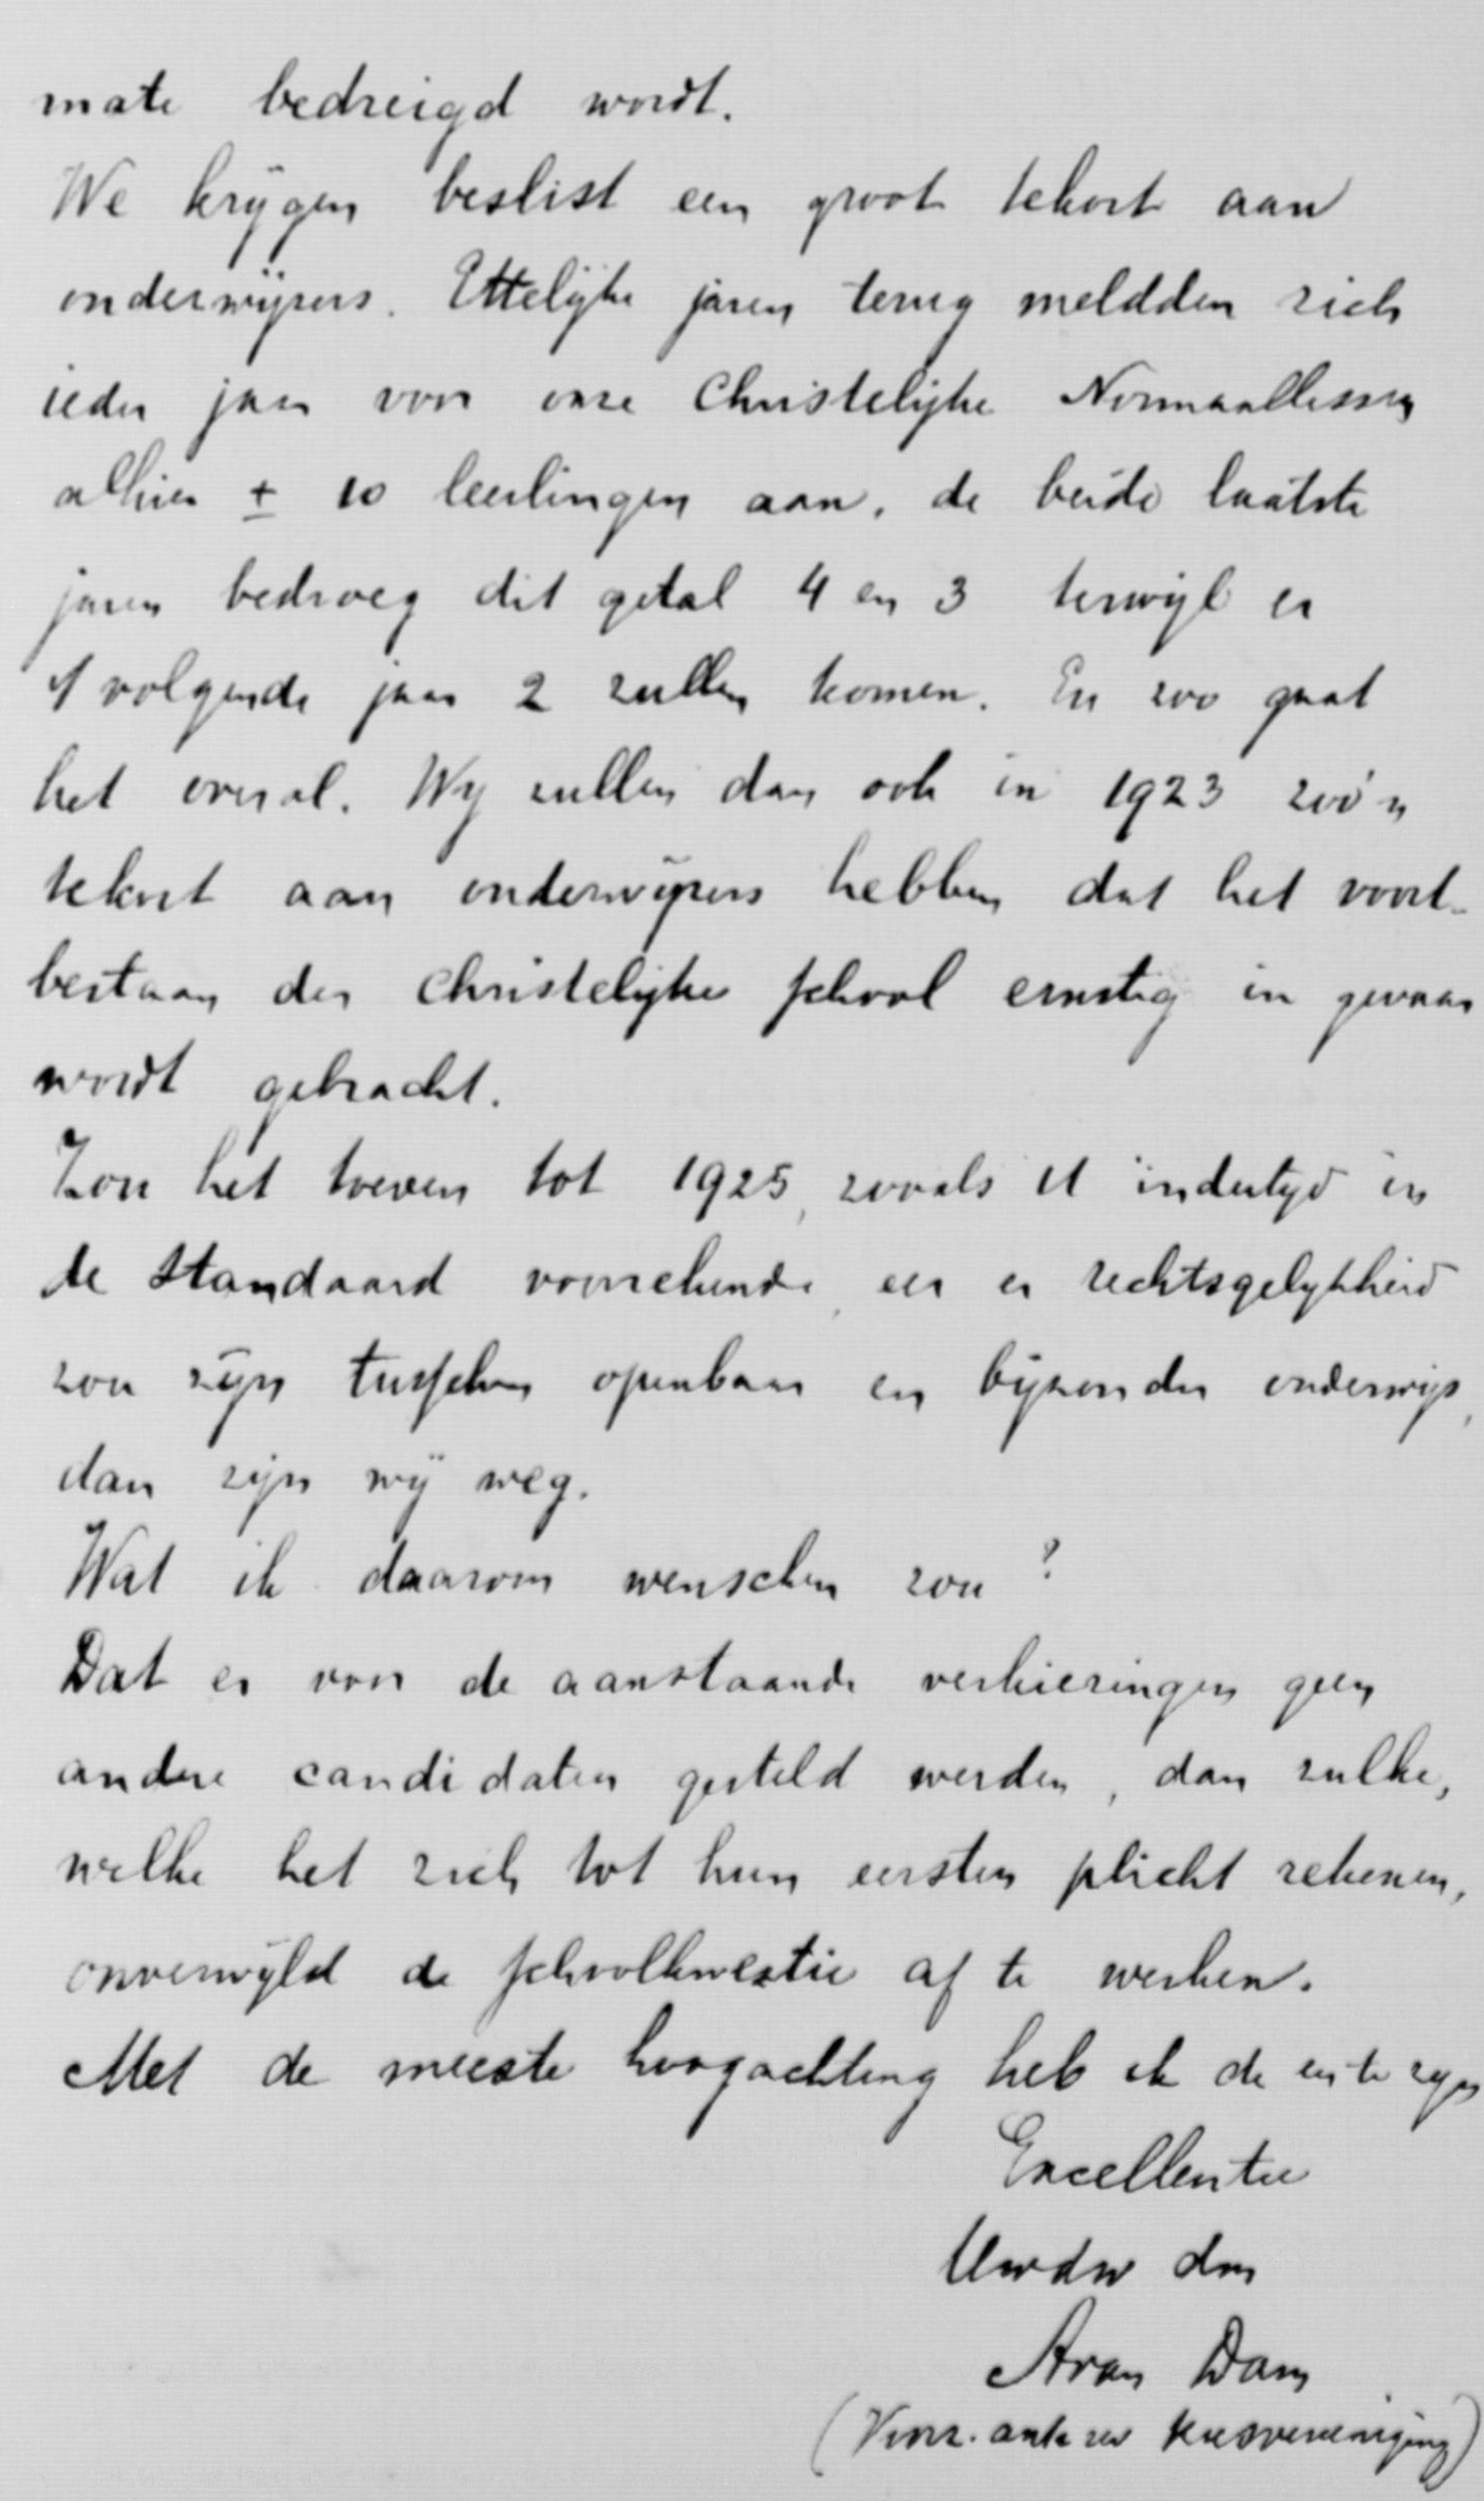 mate bedreigd wordt.
We krijgen beslist een groot tekort aan
onderwijzers. Ettelijke jaren terug meldden zich
ieder jaar voor onze Christelijke Normaallessen
alhier ± 10 leerlingen aan, de beide laatste
jaren bedroeg dit getal 4 en 3 terwijl er
't volgende jaar 2 zullen komen. En zoo gaat
het overal. Wij zullen dan ook in 1923 zóó'n
tekort aan onderwijzers hebben dat het voort-
bestaan der Christelijke school ernstig in gevaar
wordt gebracht.
Zou het toeven tot 1925, zooals U indertijd in
de Standaard voorrekende, eer er rechtsgelijkheid
zou zijn tusschen openbaar en bijzonder onderwijs,
dan zijn wij weg.
Wat ik daarom wenschen zou?
Dat er voor de aanstaande verkiezingen geen
andere candidaten gesteld werden, dan zulke,
welke het zich tot hun eersten plicht rekenen,
onverwijld de schoolkwestie af te werken.
Met de meeste hoogachting heb ik de eer te zijn
Excellentie
Uwdw dr
A van Dam
(Voorz. antirev kiesvereeniging)